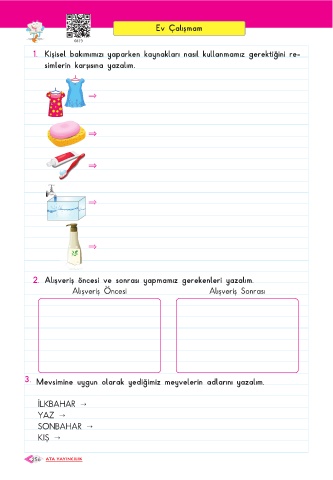 Ev Çalışmam
1. Kişisel bakımımızı yaparken kaynakları nasıl kullanmamız gerektiğini re-
simlerin karşısına yazalım.
⇒
⇒
⇒
⇒
⇒
2. Alışveriş öncesi ve sonrası yapmamız gerekenleri yazalım.
Alışveriş Öncesi
Alışveriş Sonrası
3. Mevsimine uygun olarak yediğimiz meyvelerin adlarını yazalım.
İLKBAHAR →
YAZ →
SONBAHAR →
KIŞ →
56 ATA YAYINCILIK